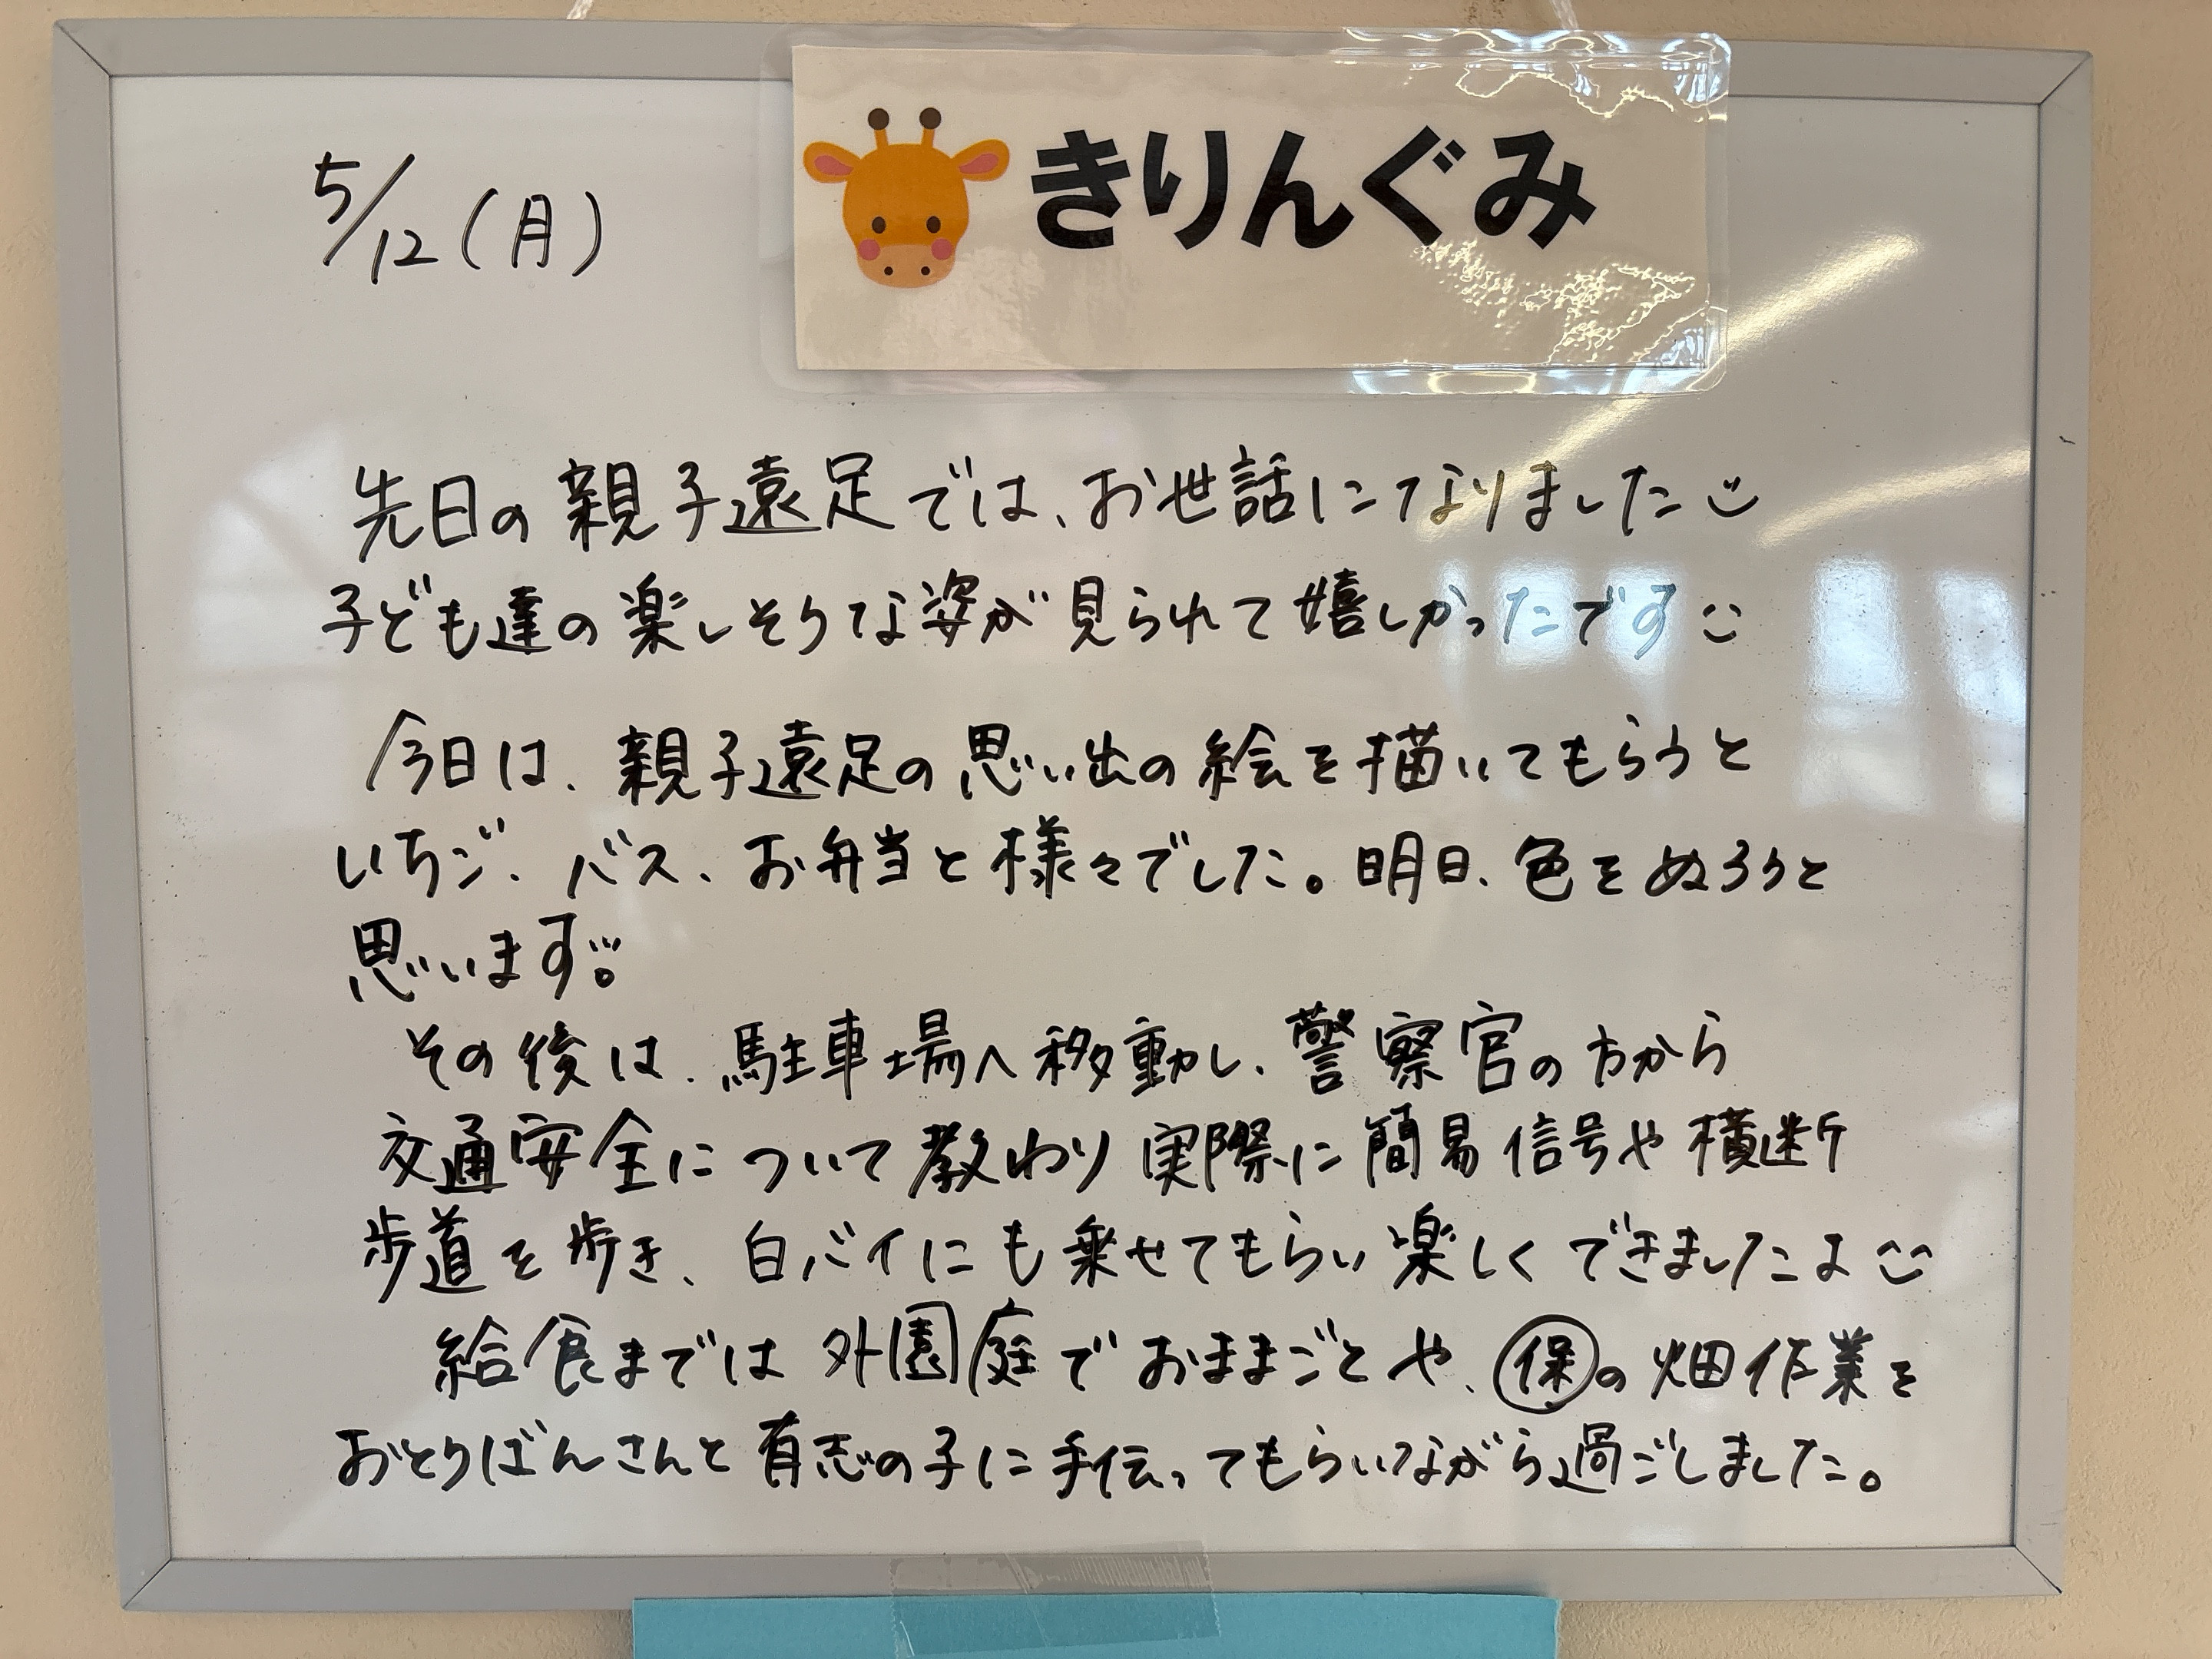 きりんぐみ
5/12(月)
先日の親子遠足では、お世話になりました
子ども達の楽しそうな姿が見られて嬉しかったです
今日は、親子遠足の思い出の絵を描いてもらうと
いちご、バス、お弁当と様々でした。明日、色をぬろうと
思います。
その後は、駐車場へ移動し、警察官の方から
交通安全について教わり実際に簡易信号や横断
歩道を歩き、白バイにも乗せてもらい楽しくできましたよ
給食までは外園庭でおままごとや、㊝の畑作業を
おとうばんさんと有志の子に手伝ってもらいながら過ごしました。